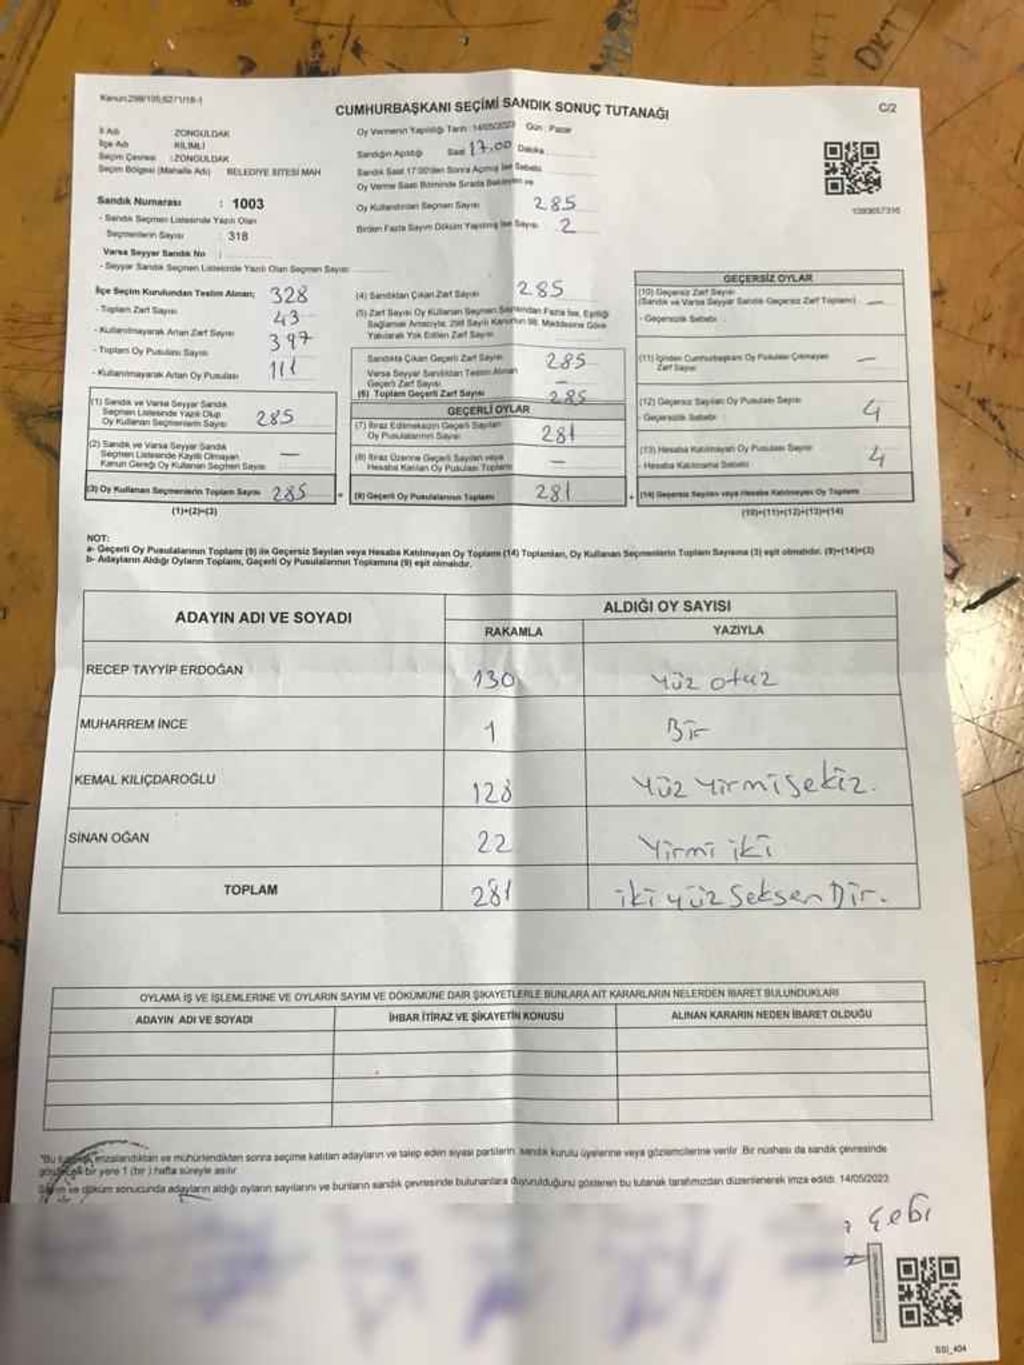 Kanun:298/105;6271/18-1
CUMHURBAŞKANI SEÇİMİ SANDIK SONUÇ TUTANAĞI
C/2
İl Adı ZONGULDAK
İlçe Adı KİLİMLİ
Seçim Çevresi :ZONGULDAK
Seçim Bölgesi (Mahalle Adı) BELEDİYE SİTESİ MAH
Sandık Numarası : 1003
- Sandık Seçmen Listesinde Yazılı Olan
Seçmenlerin Sayısı : 318
Varsa Seyyar Sandık No :
- Seyyar Sandık Seçmen Listesinde Yazılı Olan Seçmen Sayısı
Oy Vermenin Yapıldığı Tarih :14/05/2023 Gün : Pazar
Sandığın Açıldığı Saat 17.00 Dakika
Sandık Saat 17:00'den Sonra Açılmış İse Sebebi
Oy Verme Saati Bitiminde Sırada Bekleyen ve
Oy Kullandırılan Seçmen Sayısı 285
Birden Fazla Sayım Döküm Yapılmış İse Sayısı 2
İlçe Seçim Kurulundan Teslim Alınan; 328
- Toplam Zarf Sayısı 43
- Kullanılmayarak Artan Zarf Sayısı 397
- Toplam Oy Pusulası Sayısı 111
- Kullanılmayarak Artan Oy Pusulası
(1) Sandık ve Varsa Seyyar Sandık
Seçmen Listesinde Yazılı Olup
Oy Kullanan Seçmenlerin Sayısı 285
(2) Sandık ve Varsa Seyyar Sandık
Seçmen Listesinde Kayıtlı Olmayan
Kanun Gereği Oy Kullanan Seçmen Sayısı —
(3) Oy Kullanan Seçmenlerin Toplam Sayısı 285
(1)+(2)=(3)
(4) Sandıktan Çıkan Zarf Sayısı 285
(5) Zarf Sayısı Oy Kullanan Seçmen Sayısından Fazla İse, Eşitliği
Sağlamak Amacıyla, 298 Sayılı Kanun'un 98. Maddesine Göre
Yakılarak Yok Edilen Zarf Sayısı
Sandıkta Çıkan Geçerli Zarf Sayısı 285
Varsa Seyyar Sandıktan Teslim Alınan
Geçerli Zarf Sayısı —
(6) Toplam Geçerli Zarf Sayısı 285
GEÇERLİ OYLAR
(7) İtiraz Edilmeksizin Geçerli Sayılan
Oy Pusulalarının Sayısı 281
(8) İtiraz Üzerine Geçerli Sayılan veya
Hesaba Katılan Oy Pusulası Toplamı —
(9) Geçerli Oy Pusulalarının Toplamı 281
GEÇERSİZ OYLAR
(10) Geçersiz Zarf Sayısı
(Sandık ve Varsa Seyyar Sandık Geçersiz Zarf Toplamı) —
- Geçersizlik Sebebi
(11) İçinden Cumhurbaşkanı Oy Pusulası Çıkmayan
Zarf Sayısı —
(12) Geçersiz Sayılan Oy Pusulası Sayısı
- Geçersizlik Sebebi 4
(13) Hesaba Katılmayan Oy Pusulası Sayısı
- Hesaba Katılmama Sebebi 4
(14) Geçersiz Sayılan veya Hesaba Katılmayan Oy Toplamı
(10)+(11)+(12)+(13)=(14)
NOT:
a- Geçerli Oy Pusulalarının Toplamı (9) ile Geçersiz Sayılan veya Hesaba Katılmayan Oy Toplamı (14) Toplamları, Oy Kullanan Seçmenlerin Toplam Sayısına (3) eşit olmalıdır. (9)+(14)=(3)
b- Adayların Aldığı Oyların Toplamı, Geçerli Oy Pusulalarının Toplamına (9) eşit olmalıdır.
ADAYIN ADI VE SOYADI
ALDIĞI OY SAYISI
RAKAMLA YAZIYLA
RECEP TAYYİP ERDOĞAN 130 Yüz otuz
MUHARREM İNCE 1 Bir
KEMAL KILIÇDAROĞLU 128 Yüz Yirmi sekiz.
SİNAN OĞAN 22 Yirmi iki
TOPLAM 281 iki yüz Seksen Bir.
OYLAMA İŞ VE İŞLEMLERİNE VE OYLARIN SAYIM VE DÖKÜMÜNE DAİR ŞİKAYETLERLE BUNLARA AİT KARARLARIN NELERDEN İBARET BULUNDUKLARI
ADAYIN ADI VE SOYADI İHBAR İTİRAZ VE ŞİKAYETİN KONUSU ALINAN KARARIN NEDEN İBARET OLDUĞU
"Bu imzalandıktan ve mühürlendikten sonra seçime katılan adayların ve talep eden siyasi partilerin sandık kurulu üyelerine veya gözlemcilerine verilir. Bir nüshası da sandık çevresinde
bir yere 1 (bir ) hafta süreyle asılır.
Sayım ve döküm sonucunda adayların aldığı oyların sayılarını ve bunların sandık çevresinde bulunanlara duyurulduğunu gösteren bu tutanak tarafımızdan düzenlenerek imza edildi. 14/05/2023
Çebi
SSI_404